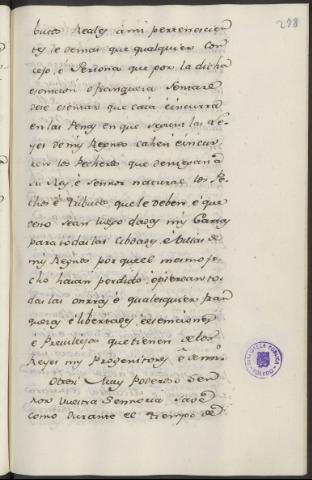 278
butos Reales á mi pertenecien
tes é demas que qualquier con
cejo, é Persona que por la dicha
esencion é franqueza
se escusar que caia é incurra
en las Penas en que segunt las Le
yes de mis Reynos cahen é incur
ren los Pecheros que deniegan á
su Rey é Sennor natural los Pe
chos é Tributos que le deben é que
desto sean luego dadas mis Cartas
para todas las Cibdades é Villas de
mis Reynos por que el mesmo fe
cho haian perdido é pierdan to
das las onrras é qualesquier fran
quezas é libertades, é esenciones
é Previllejos que tienen de los
Reyes mis Progenitores é de mi.
Otrosi Muy Poderoso Sen
nor Vuestra Sennoria sabe
como durante el tiempo de
BIBLIOTECA PUBLICA
TOLEDO